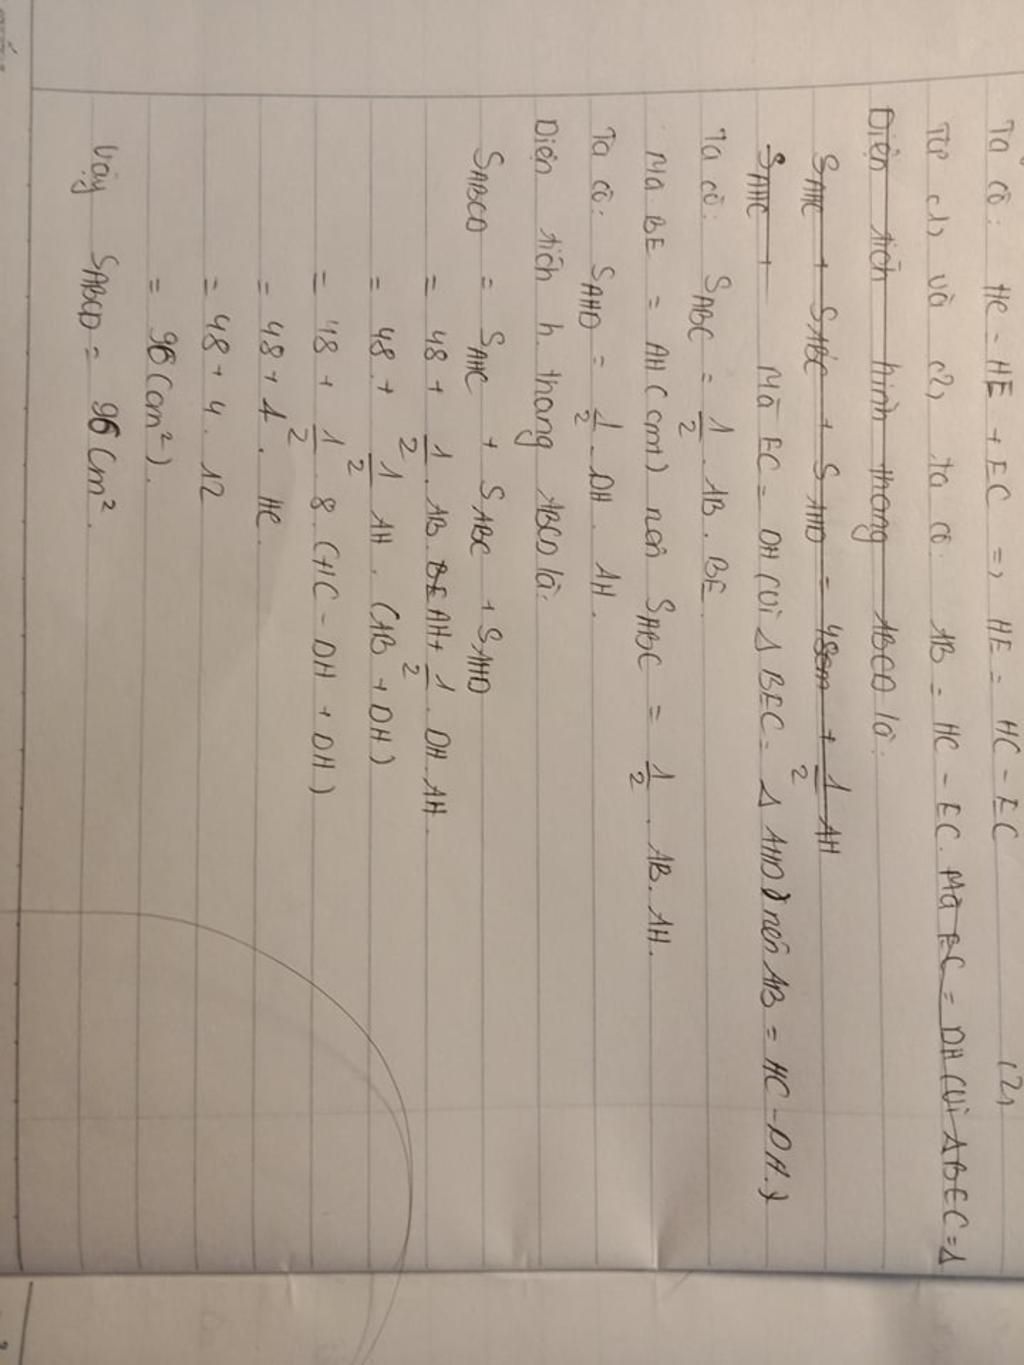 Ta có: HC = HE + EC => HE = HC - EC (2)
Từ (1) và (2) ta có: AB = HC - EC. Mà EC = DH (vì ΔBEC = Δ
Diện tích hình thang ABCD là:
SAHC + SABC + SAHD = 48cm + 1/2 AH
SAHC + Mà EC = DH (vì Δ BEC = Δ AHD) nên AB = HC - DH.)
Ta có: SABC = 1/2 . AB . BE
Mà BE = AH (cm) nên SABC = 1/2 . AB . AH.
Ta có: SAHD = 1/2 . DH . AH.
Diện tích h. thang ABCD là:
SABCD = SAHC + SABC + SAHD
= 48 + 1/2 . AB . BE AH + 1/2 . DH . AH.
= 48 + 1/2 AH . (AB + DH)
= 48 + 1/2 . 8 . (HC - DH + DH)
= 48 + 4 . HC.
= 48 + 4 . 12
= 96 (cm²).
Vậy SABCD = 96 cm².